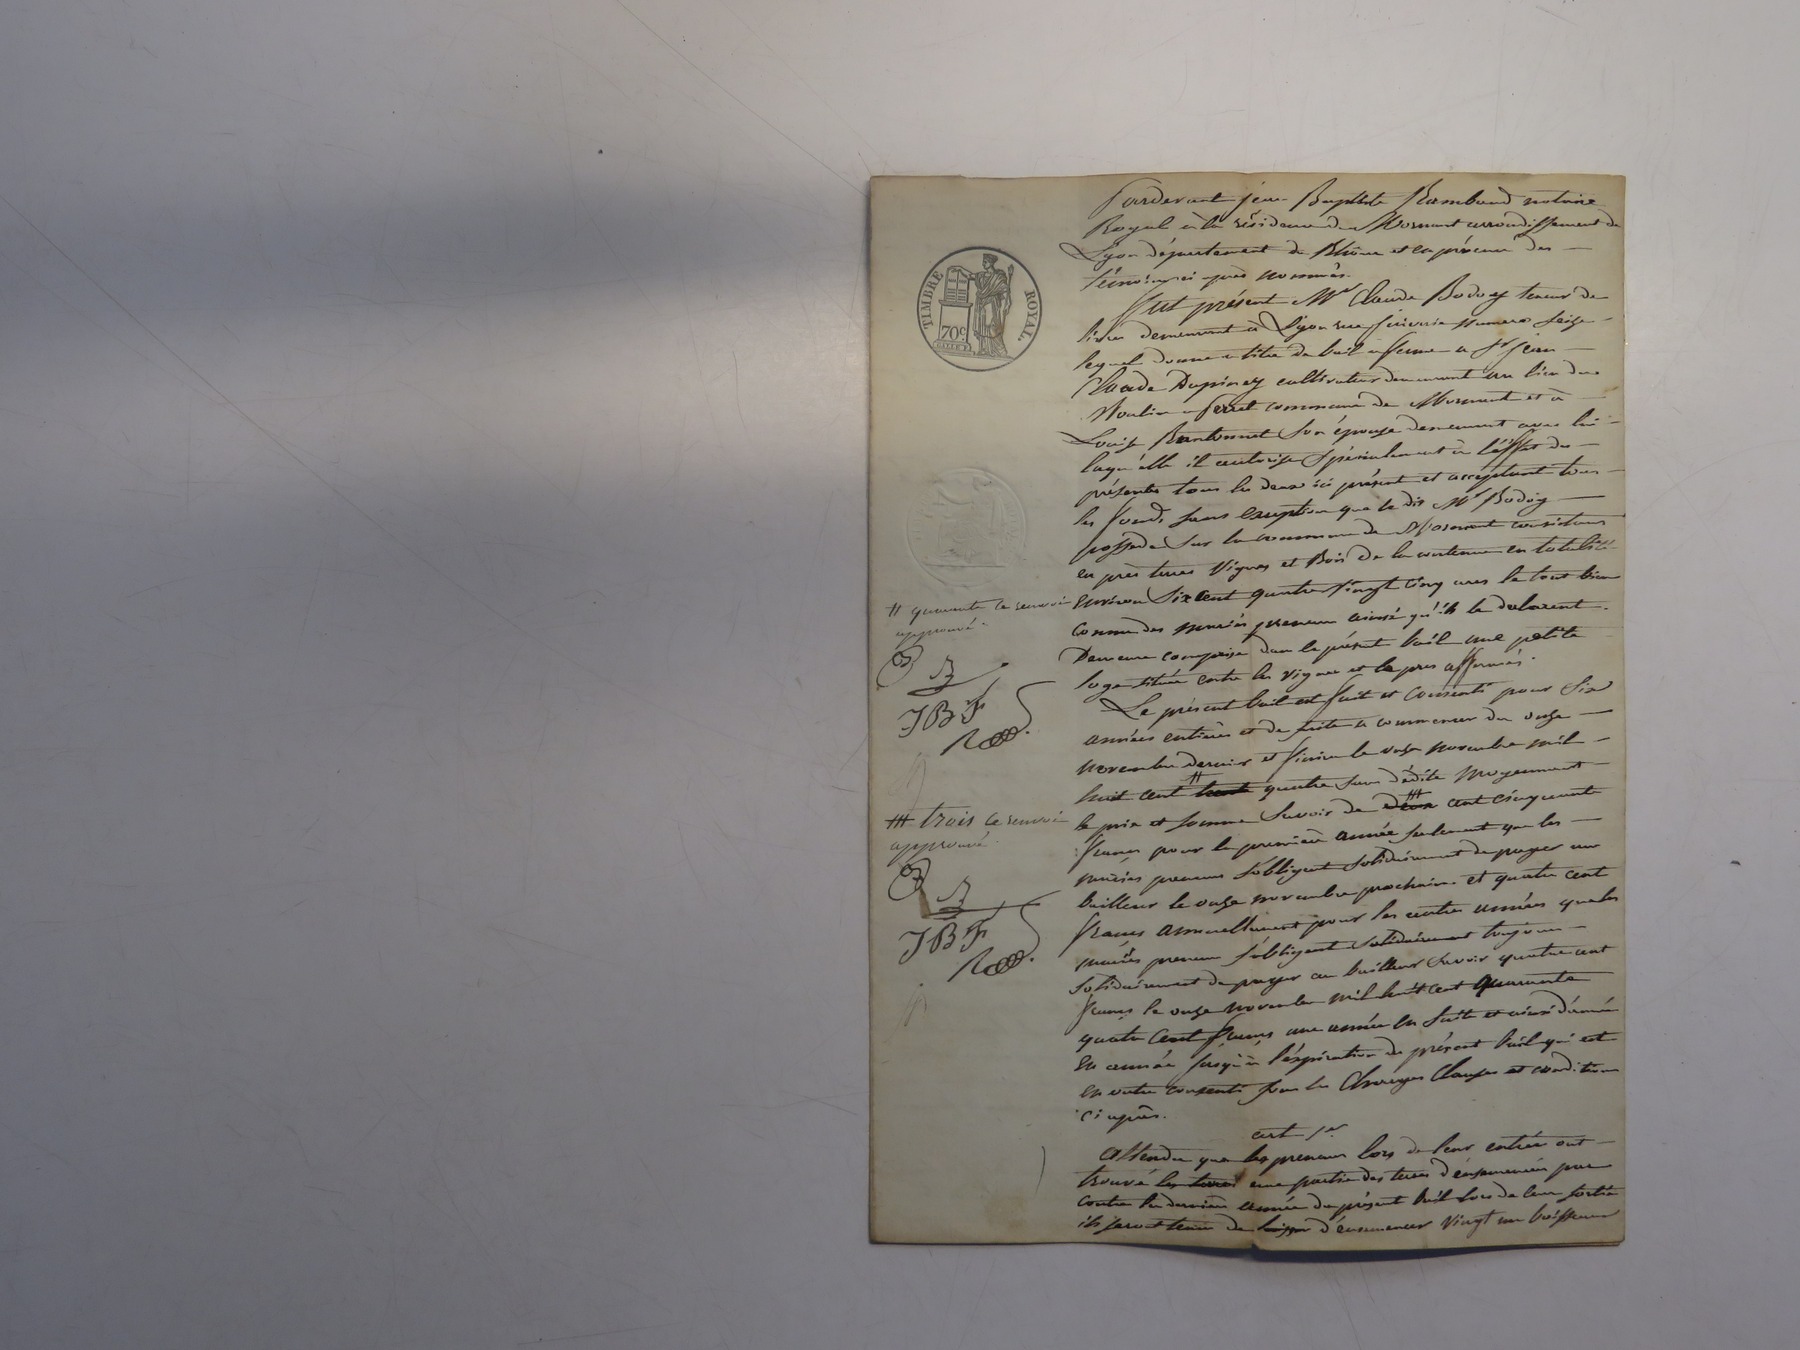 Pardevant jean Baptiste Rambaud notaire
Royal à la résidence de Mornant arrondissement de
Lyon département du Rhône et en présence des
témoins ci après nommés.
Fut présent Mr Claude Bodoy teneur de
livres demeurant à Lyon rue numero seize
lequel donne a titre de bail a ferme a Sr jean
Claude Dupiney cultivateur demeurant au lieu du
Moulin a commune de Mornant et à
Louise son épouse demeurant avec lui
laqu'elle il autorise spécialement à l'éffet des
présentes tous les deux ici présent et acceptant tous
les fonds sans exception que le dit Mr Bodoy
possede sur la commune de Mornant consistans
en près terres Vignes et Bois de la contenue en totalité
environ Six cent quatre vingt cinq ares le tout bien
connu des mariés preneurs ainsi qu'ils le declarent.
Demeure comprise dans le présent bail une petite
loge située entre les vignes et le pres affermés.
Le présent bail est fait et consenti pour Six
années entières et de suite a commencer du onze
novembre dernier et finira le onze novembre mil
huit cent trente # quatre sans dédite moyennant
le prix et somme savoir de deux ## cent cinquante
francs pour la premiere année seulement que les
mariés preneurs s'obligent solidairement de payer au
bailleur le onze novembre prochain et quatre cent
francs annuellement pour les autres années que les
mariés preneurs s'obligent solidairement toujours
solidairement de payer au bailleur savoir quatre cent
francs le onze novembre mil huit cent quarante
quatre cent francs une année en suite et ainsi d'année
en année jusqu'à l'éxpiration du présent bail qui est
en outre consenti sous les Charges Clauses et conditions
ci après.
art 1er
Attendu que les preneurs lors de leur entrée ont
trouvé les terres une partie des terres d'ensemencées par
contre la derniere année du présent bail lors de leur sortie
ils seront tenu de laisser d'ensemencer Vingt un boisseaux
TIMBRE ROYAL.
70c
# quarante ce renvoi
approuvé.
B
JBF
## trois ce renvoi
approuvé.
B
JBF